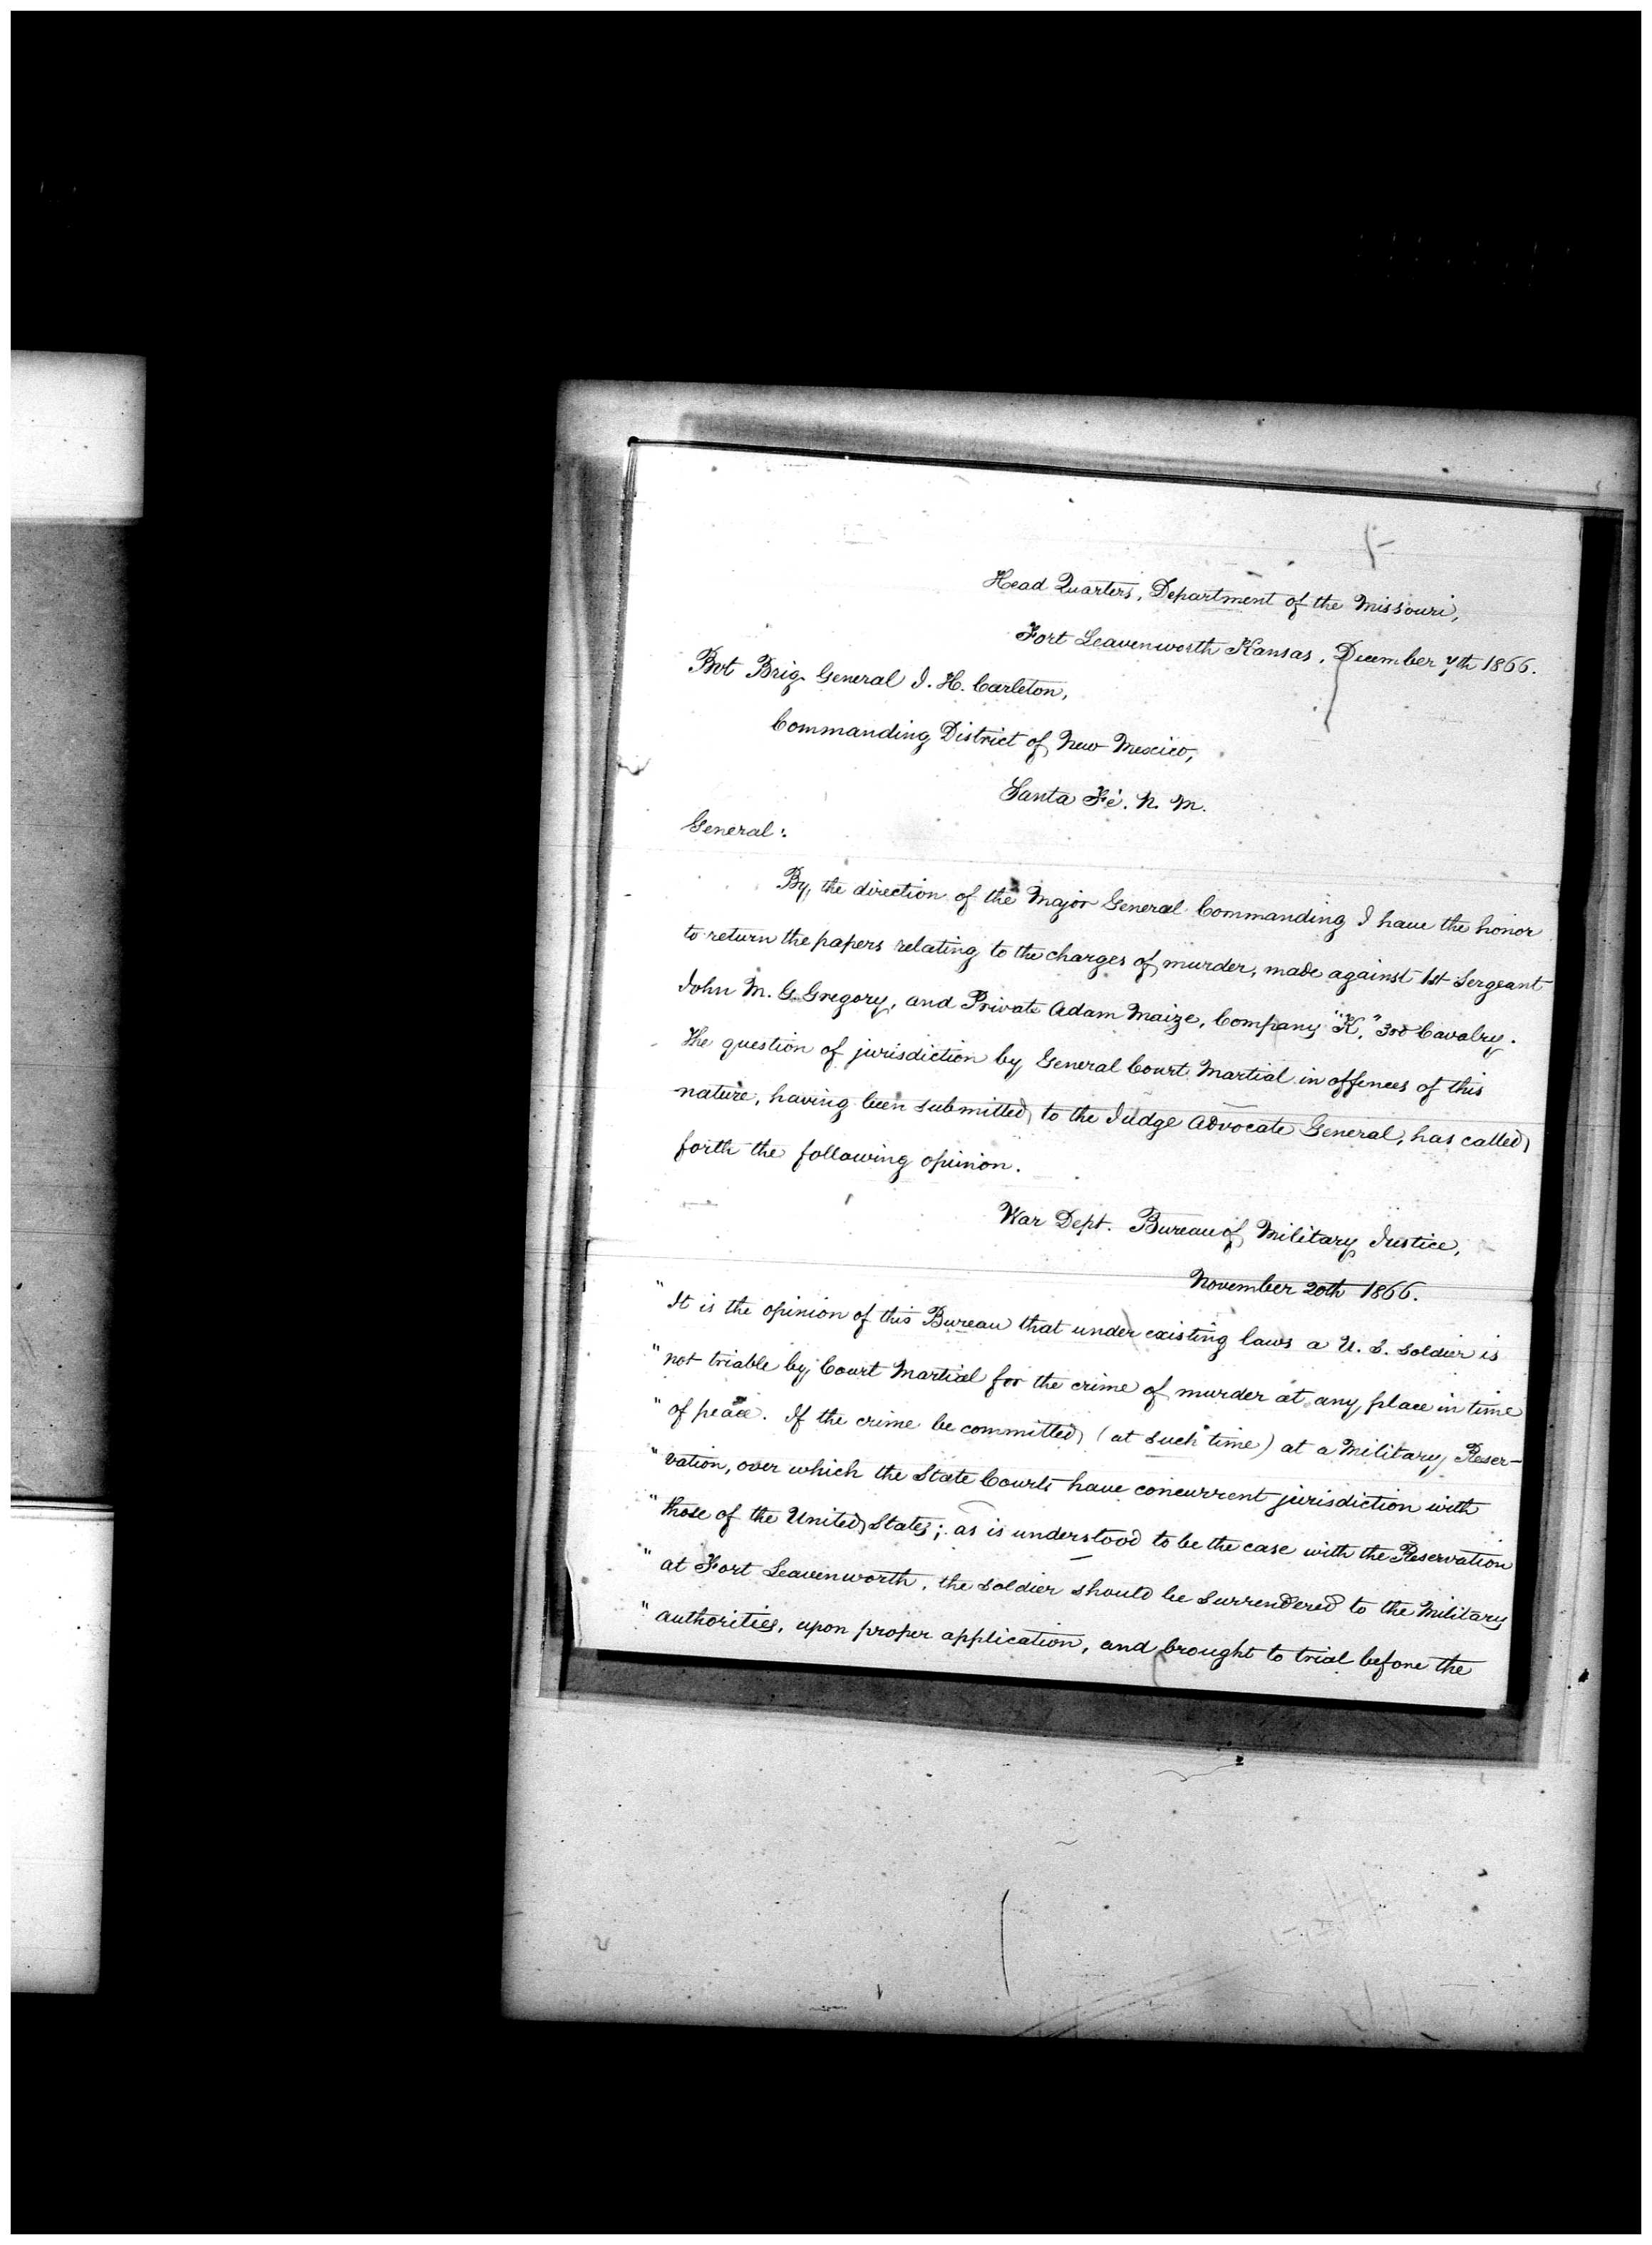 Head Quarters, Department of the Missouri,
Fort Leavenworth Kansas, December 7th 1866.
Bvt Brig. General J. H. Carleton,
Commanding District of New Mexico,
Santa Fé. N. M.
General:
By the direction of the Major General Commanding I have the honor
to return the papers relating to the charges of murder, made against 1st Sergeant
John M. G. Gregory, and Private Adam Maize, Company "K," 3rd Cavalry.
The question of jurisdiction by General Court Martial in offences of this
nature, having been submitted to the Judge Advocate General, has called
forth the following opinion.
War Dept. Bureau of Military Justice,
November 20th 1866.
"It is the opinion of this Bureau that under existing laws a U. S. soldier is
"not triable by Court Martial for the crime of murder at any place in time
"of peace. If the crime be committed (at such time) at a Military Reser-
"vation, over which the State Courts have concurrent jurisdiction with
"those of the United States; as is understood to be the case with the Reservation
"at Fort Leavenworth, the soldier should be surrendered to the Military
"authorities, upon proper application, and brought to trial before the